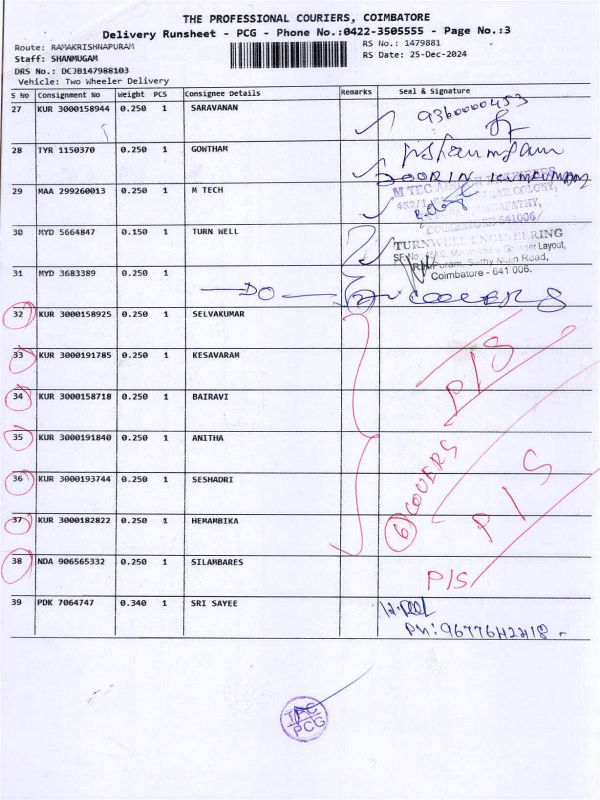 THE PROFESSIONAL COURIERS, COIMBATORE
Delivery Runsheet - PCG - Phone No.:0422-3505555 - Page No.:3
Route: RAMAKRISHNAPURAM RS No.: 1479881
Staff: SHANMUGAM RS Date: 25-Dec-2024
DRS No.: DCJB147988103
Vehicle: Two Wheeler Delivery
S No Consignment No Weight PCS Consignee Details Remarks Seal & Signature
27 KUR 3000158944 0.250 1 SARAVANAN 9360000453
28 TYR 1150370 0.250 1 GOWTHAM
29 MAA 299260013 0.250 1 M TECH
M TEC
COLONY,
COIMBATORE-641006
30 MYD 5664847 0.150 1 TURN WELL
TURNWELL ENGINEERING
Layout,
Sathy Main Road,
Coimbatore - 641 006.
31 MYD 3683389 0.250 1 DO 2 COVERS
32 KUR 3000158925 0.250 1 SELVAKUMAR
33 KUR 3000191785 0.250 1 KESAVARAM P/S
34 KUR 3000158718 0.250 1 BAIRAVI
35 KUR 3000191840 0.250 1 ANITHA
36 KUR 3000193744 0.250 1 SESHADRI
37 KUR 3000182822 0.250 1 HEMAMBIKA 6 COVERS P/S
38 NDA 906565332 0.250 1 SILAMBARES P/S
39 PDK 7064747 0.340 1 SRI SAYEE
TPC
PCG